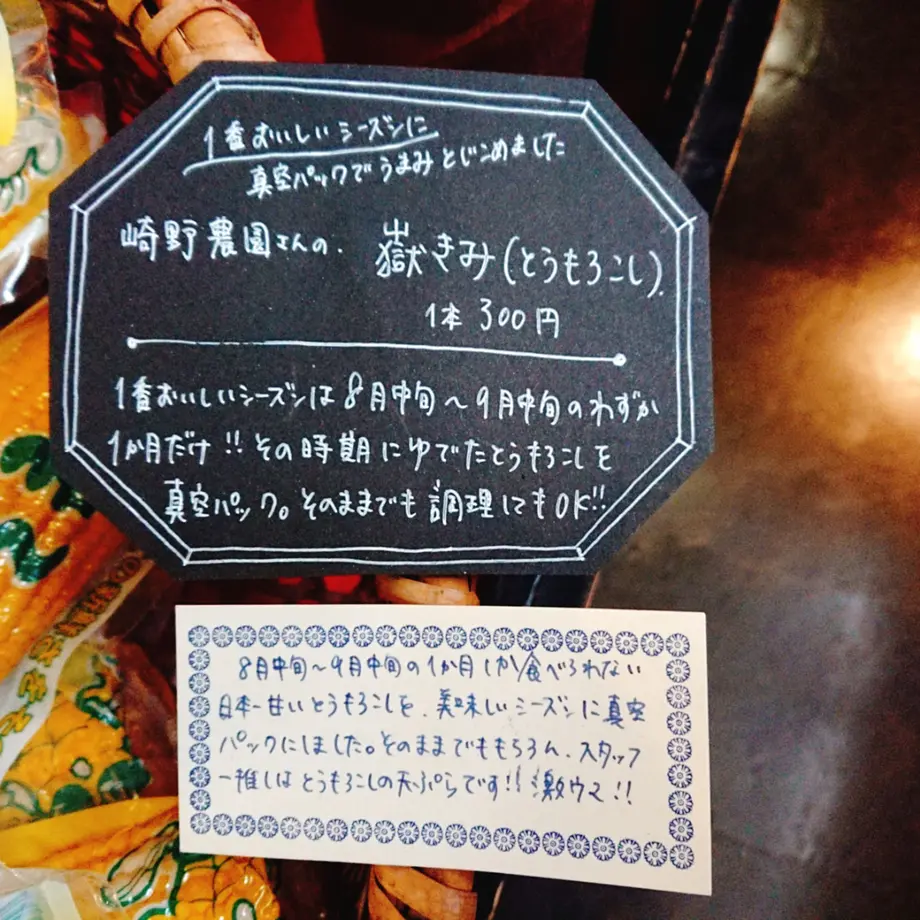 1番おいしいシーズンに
真空パックでうまみとじこめました
崎野農園さんの、 嶽きみ(とうもろこし).
1本 300円
1番おいしいシーズンは8月中旬〜9月中旬のわずか
1か月だけ!!その時期にゆでたとうもろこしを
真空パック。そのままでも調理してもOK!!
8月中旬〜9月中旬の1か月しか食べられない
日本一甘いとうもろこしを、美味しいシーズンに真空
パックにしました。そのままでももちろん、スタッフ
一推しはとうもろこしの天ぷらです!!激ウマ!!